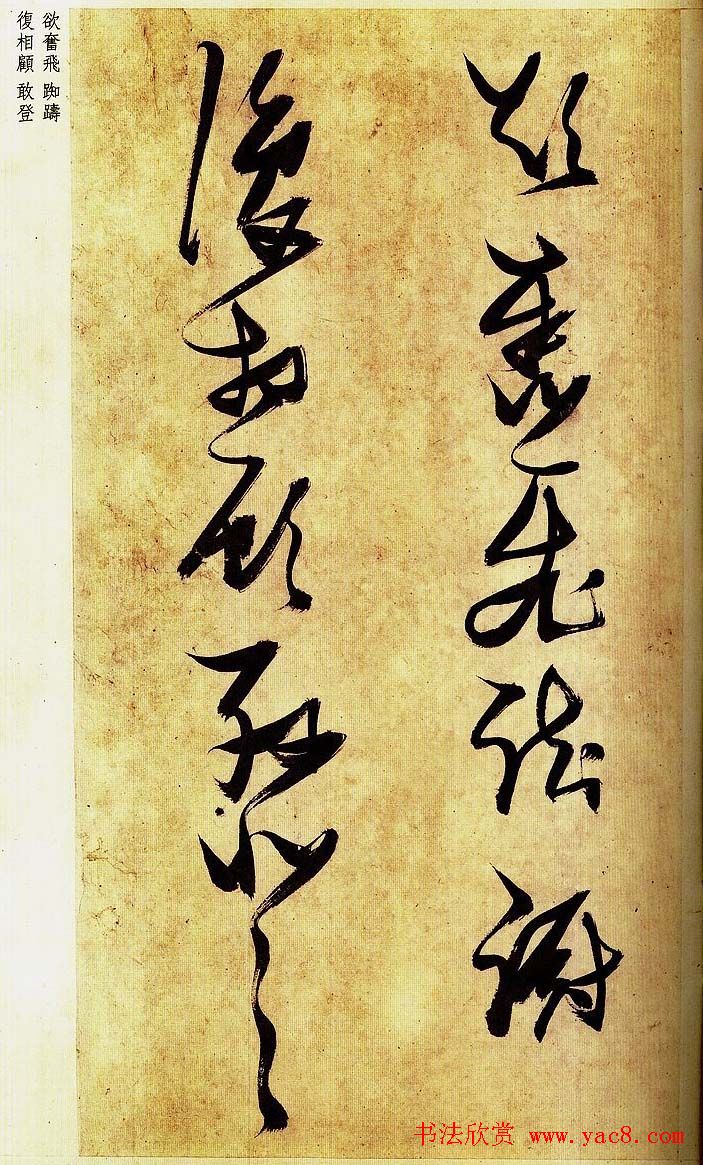 欲奮飛踟躕
復相顧敢登
欲奮飛 踟躕
復相顧 敢登
书法欣赏 www.yac8.com